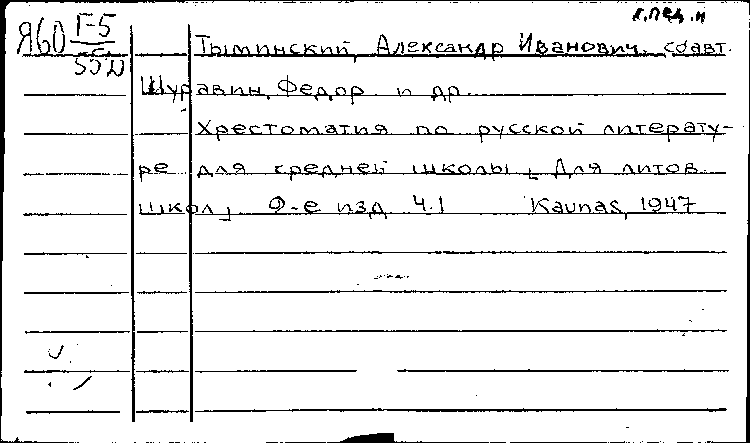 к.пед.н
Я60 Г-5
Тыминский, Александр Иванович. соавт.
Шуравин, Федор и др.
Хрестоматия по русской литерату-
ре для средней школы [Для литов.
школ] -е изд. Ч.1 Kaunas, 1947